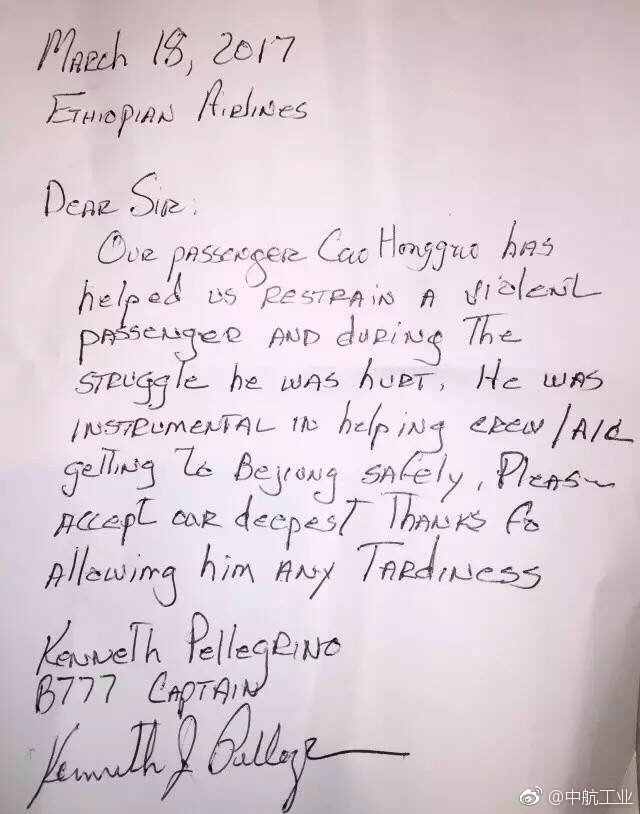 March 18, 2017
Ethiopian Airlines
Dear Sir:
Our passenger Cao Hongguo has
helped us restrain a violent
passenger and during the
struggle he was hurt. He was
instrumental in helping crew/A/C
getting to Bejiong safely, Please
accept our deepest thanks fo
allowing him any tardiness
Kenneth Pellegrino
B777 Captain
Kenneth J
@中航工业